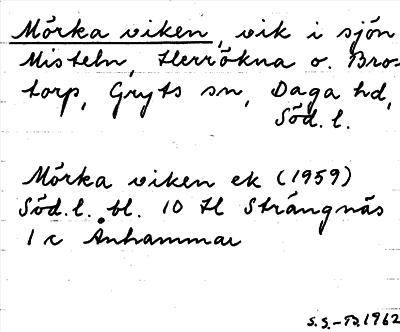 Mörka viken, vik i sjön
Misteln, Herrökna o. Bro-
torp, Gryts sn, Daga hd,
Söd. l.
Mörka viken ek (1959)
Söd. l. bl. 10 H Strängnäs
1 c Änhammar
S.S.-B. 1962